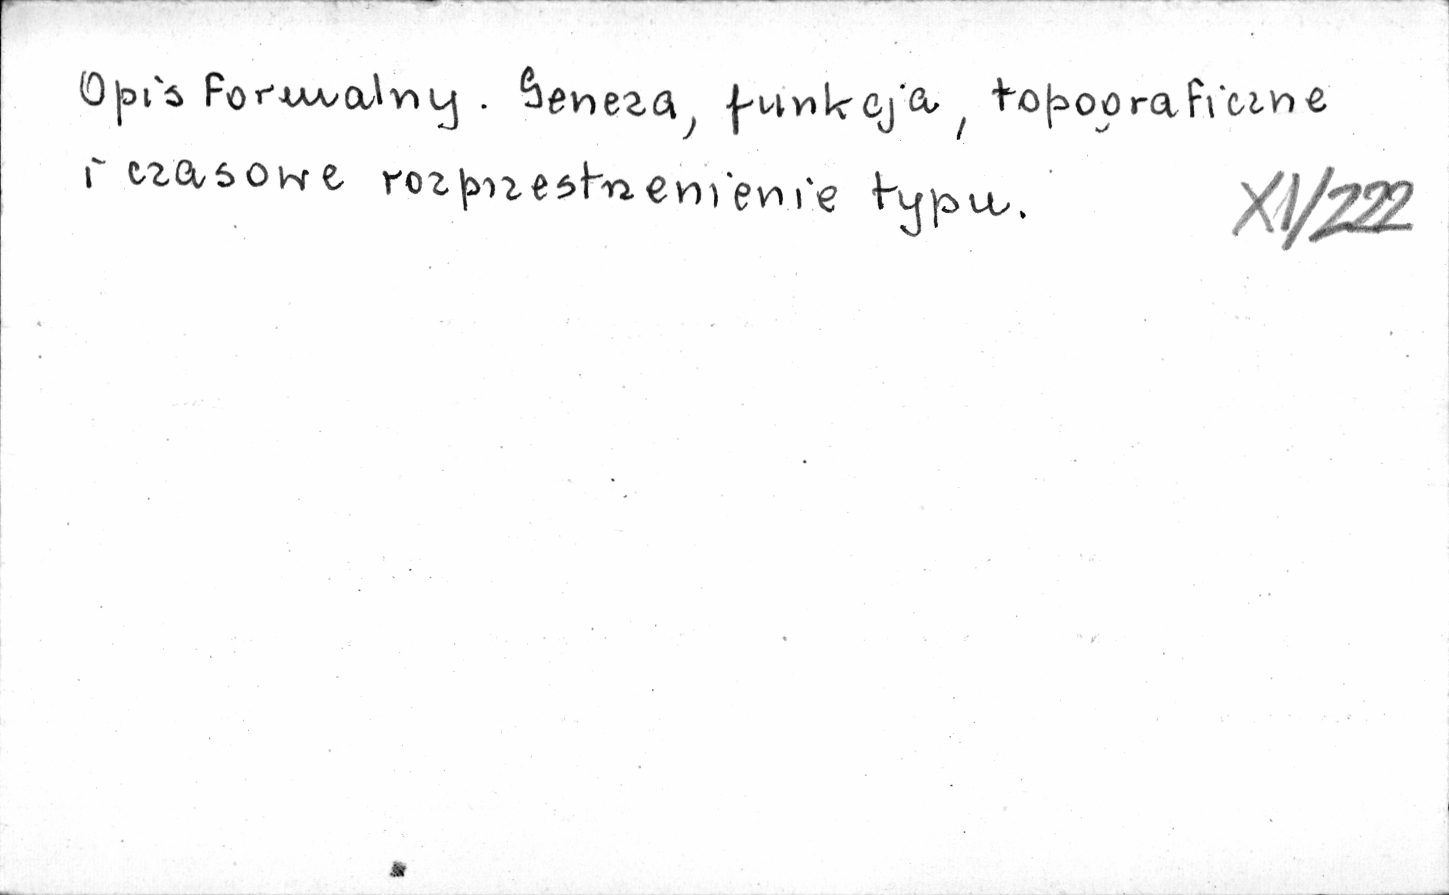 Opis formalny. Geneza, funkcja, topograficzne
i czasowe rozprzestrzenienie typu.
XI/222